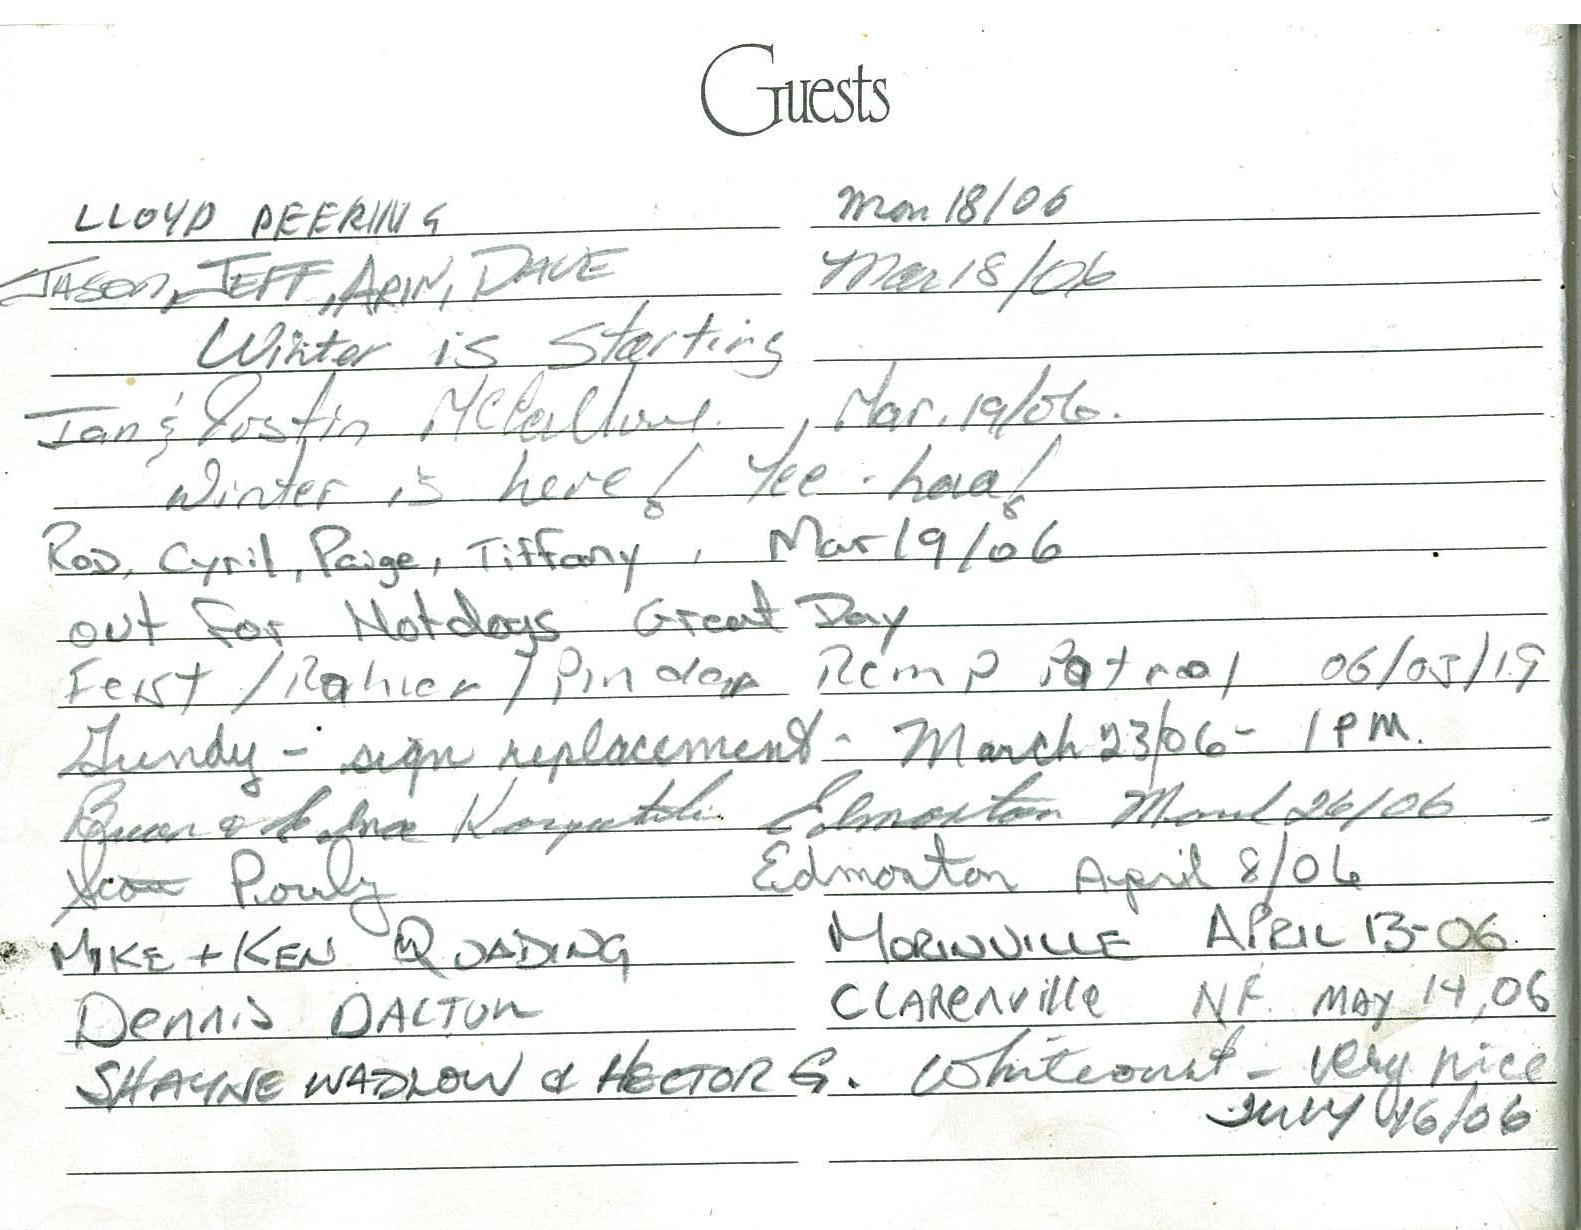 Guests
LLOYD DEERING Mar 18/06
JASON, JEFF, ARIN, DAVE Mar 18/06
Winter is starting
Ian & Justin McCallum. , Mar. 19/06.
Winter is here! Yee-haa!
Rod, Cyril, Paige, Tiffany , Mar 19/06
out for Hotdogs Great Day
/ / Pinder Rcmp Patrol 06/03/19
Gundy - sign replacement - March 23/06 - 1 PM.
& Edmonton March 26/06
Scott Edmonton April 8/06
MIKE + KEN QUADING MORINVILLE APRIL 13-06
Dennis DALTON CLARENVille NF. MAY 14, 06
SHAYNE WADLOW & HECTOR G. Whitecourt - very nice
JULY 16/06